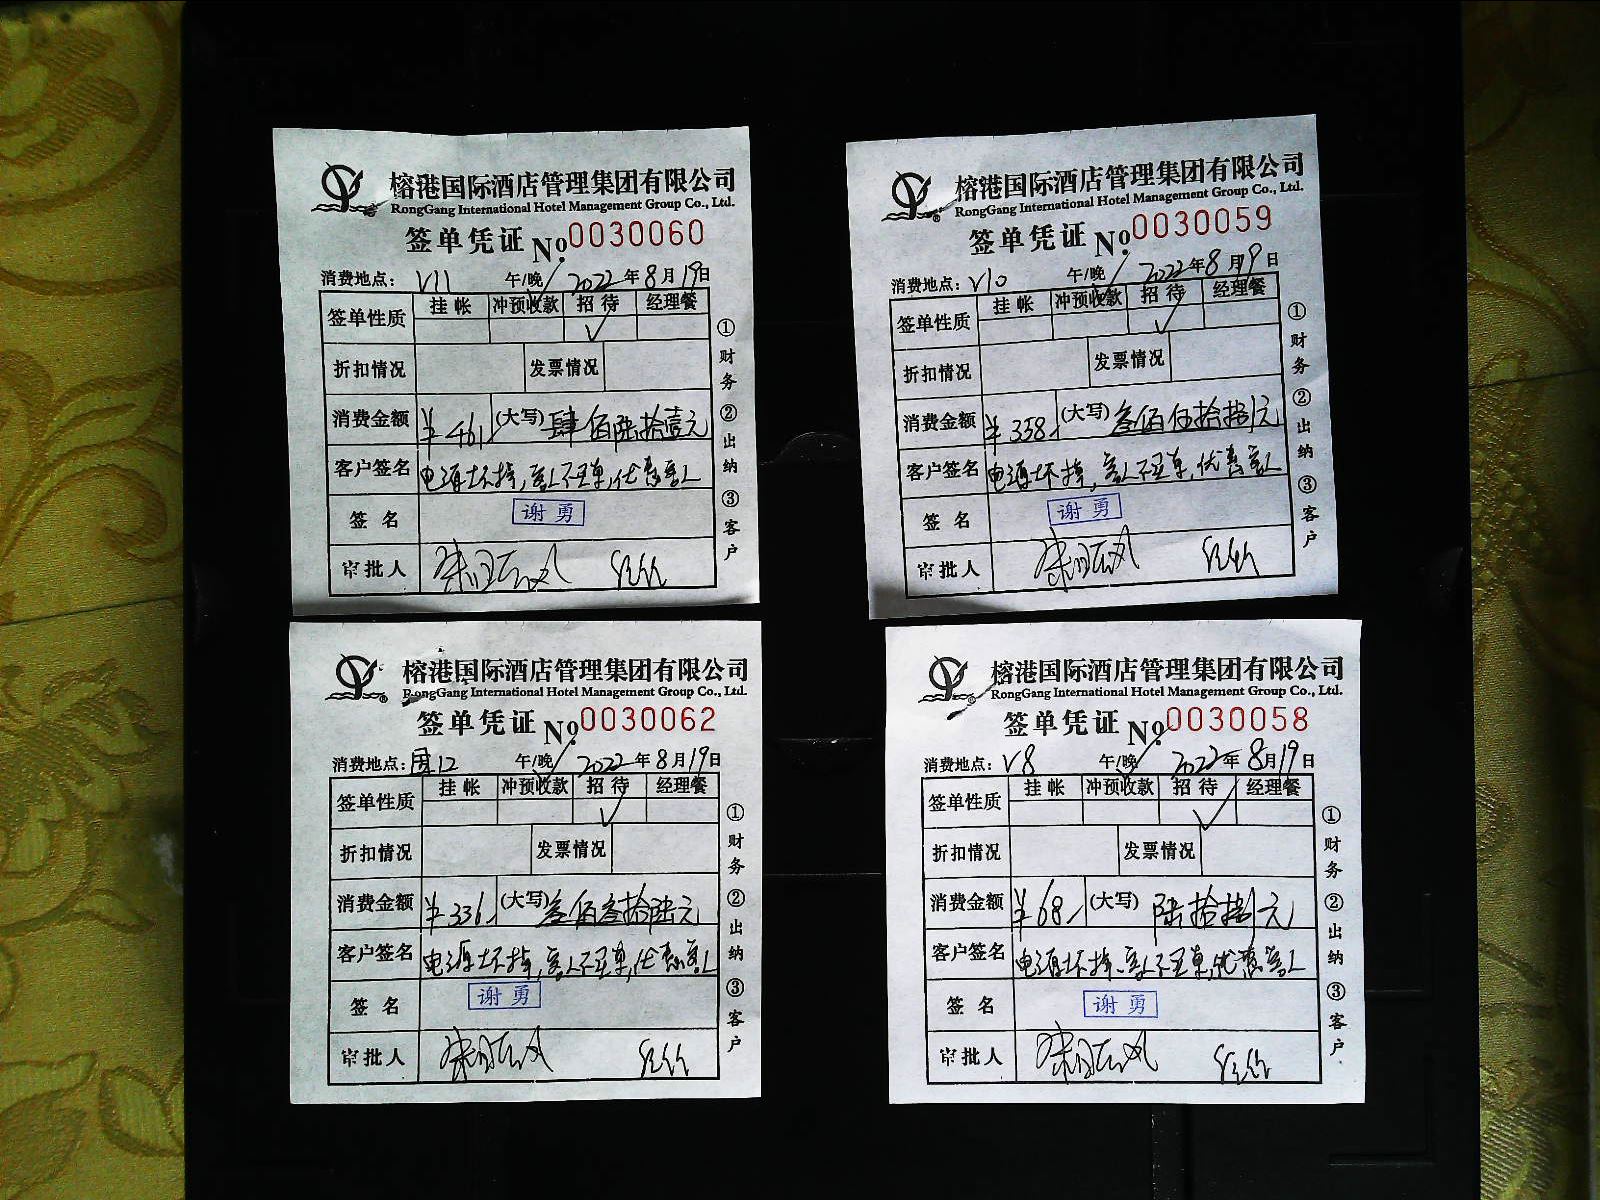 榕港国际酒店管理集团有限公司
RongGang International Hotel Management Group Co., Ltd.
签单凭证 No. 0030060
消费地点: V11 午/晚 2022年8月19日
签单性质 挂帐 冲预收款 招待 经理餐
✓
折扣情况 发票情况
消费金额 ¥461 (大写) 肆佰陆拾壹元
客户签名 电源坏掉,客人不买单,优惠客人
签名 谢勇
审批人
①财务 ②出纳 ③客户
榕港国际酒店管理集团有限公司
RongGang International Hotel Management Group Co., Ltd.
签单凭证 No. 0030059
消费地点: V10 午/晚 2022年8月19日
签单性质 挂帐 冲预收款 招待 经理餐
✓
折扣情况 发票情况
消费金额 ¥358 (大写) 叁佰伍拾捌元
客户签名 电源坏掉,客人不买单,优惠客人
签名 谢勇
审批人
①财务 ②出纳 ③客户
榕港国际酒店管理集团有限公司
RongGang International Hotel Management Group Co., Ltd.
签单凭证 No. 0030062
消费地点: 12 午/晚 2022年8月19日
签单性质 挂帐 冲预收款 招待 经理餐
✓
折扣情况 发票情况
消费金额 ¥336 (大写) 叁佰叁拾陆元
客户签名 电源坏掉,客人不买单,优惠客人
签名 谢勇
审批人
①财务 ②出纳 ③客户
榕港国际酒店管理集团有限公司
RongGang International Hotel Management Group Co., Ltd.
签单凭证 No. 0030058
消费地点: V8 午/晚 2022年8月19日
签单性质 挂帐 冲预收款 招待 经理餐
✓
折扣情况 发票情况
消费金额 ¥68 (大写) 陆拾捌元
客户签名 电源坏掉,客人不买单,优惠客人
签名 谢勇
审批人
①财务 ②出纳 ③客户